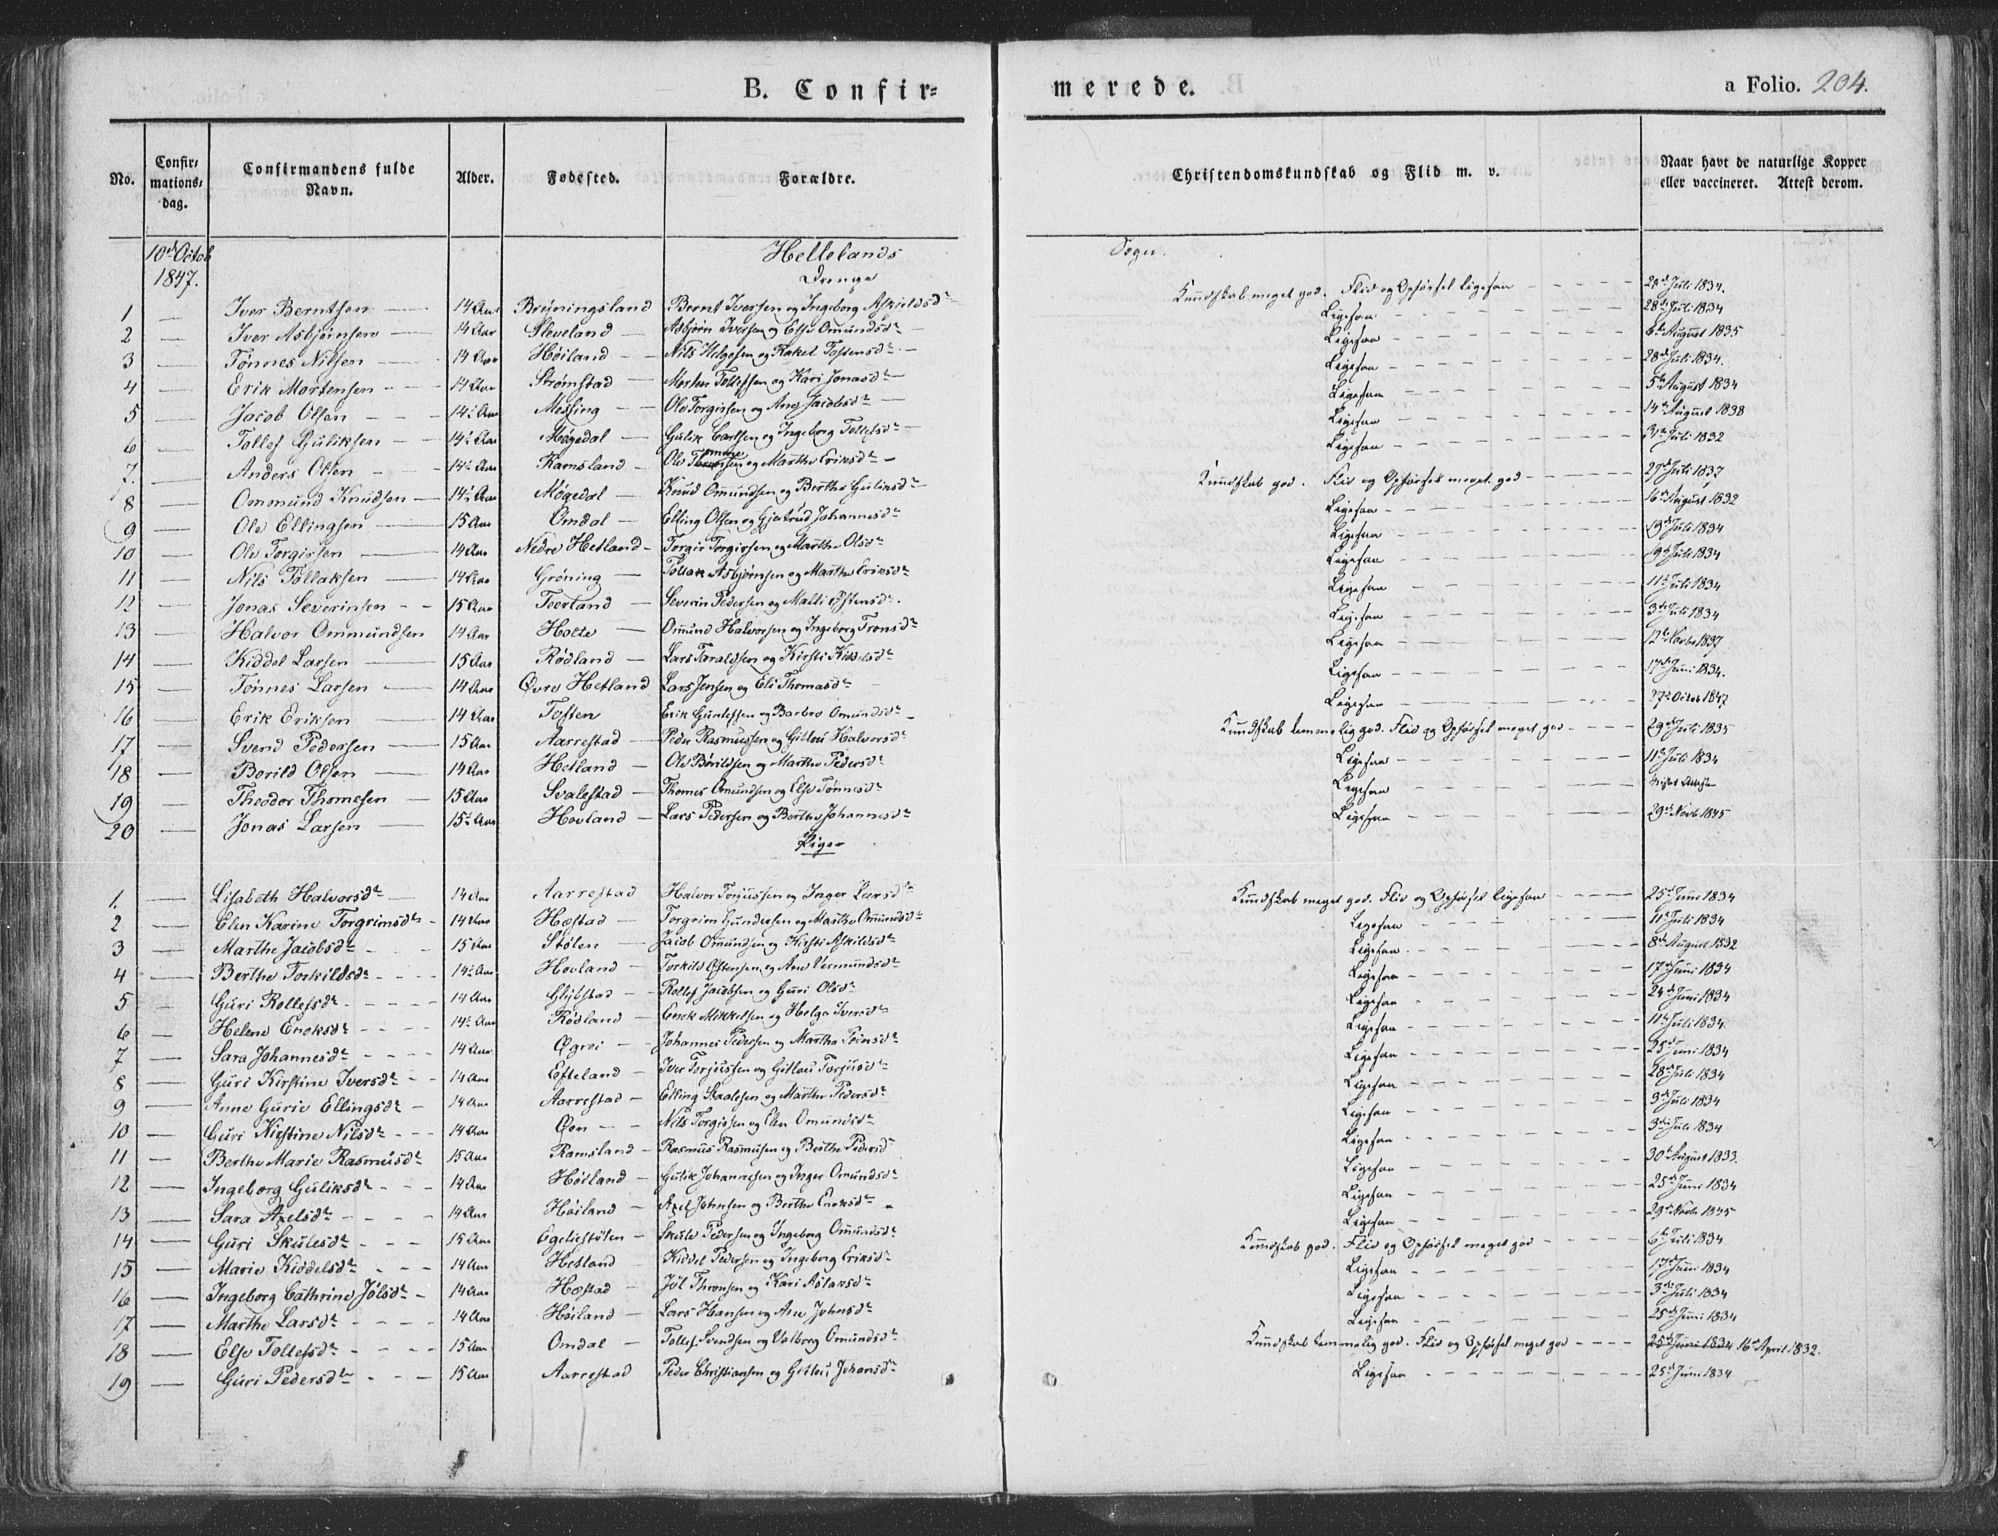 B. Confir=
merede.
a Folio. 204.
No. Confir= mations= dag. Confirmandens fulde Navn. Alder. Fødested. Forældre. Christendomskundskab og Flid m. v. Naar havt de naturlige Kopper eller vaccineret. Attest derom.
10d Octob 1847. Hellelands Sogn.
Drenge
1 — Iver Berntsen — 14 Aar Bröningsland Bernt Iversen og Ingeborg Askieldsdr Kundskab meget god. Flid og Opførsel ligesaa 28d Juli 1834.
2 — Iver Asbjörnsen 14 Aar Sleveland — Asbjörn Iversen og Else Omundsdr — Ligesaa 28d Juli 1834
3 — Tönnes Nilsen — 14 Aar Höiland — Nils Helgesen og Rakel Tostensdr — Ligesaa 6te August 1835
4 — Erik Mortensen 14 Aar Strömstad — Morten Tollefsen og Kari Jonasdr — Ligesaa 28d Juli 1834.
5 — Jacob Olsen 14½ Aar Messing — Ole Torgirsen og Ane Jacobsdr — Ligesaa 5te August 1834
6 — Tollef Guliksen 14½ Aar Mögedal — Gulik Carlsen og Ingeborg Tollefsdr — Ligesaa 14de August 1838
7. — Anders Olsen 14½ Aar Ramsland — Ole og Marthe Eriksdr — Ligesaa 3die Juli 1832
8 — Ommund Knudsen — 14½ Aar Mögedal — Knud Omundsen og Berthe Guliksdr — Kundskab god. Flid og Opførsel meget god 27d Juli 1837
9 — Ole Ellingsen — 15 Aar Omdal — Elling Olsen og Gjertrud Johannesdr Ligesaa 16de August 1832
10 — Ole Torgirsen — 14 Aar Nedre Hetland — Torgir Torgirsen og Marthe Olsdr Ligesaa 19d Juli 1834
11 — Nils Tollaksen — 14 Aar Gröning — Tollak Asbjörnsen og Marthe Eriksdr Ligesaa 9de Juli 1834
12 — Jonas Severinsen 15 Aar Tverland — Severin Pedersen og Malli Ostensdr. Ligesaa 11te Juli 1834
13 — Halvor Ommundsen 14 Aar Holte — Omund Halvorsen og Ingeborg Tronsdr Ligesaa 3die Juli 1834
14 — Kiddel Larsen — 15 Aar Rödland — Lars Taraldsen og Kirsti Kiddelsdr Ligesaa 12te Novbr 1837
15 — Tönnes Larsen — 14 Aar Övre Hetland Lars Jensen og Eli Thomasdr Ligesaa 17de Juni 1834.
16 — Erik Eriksen — 14 Aar Toften Erik Guntessen og Barbro Omundsdr Ligesaa 7de Octob 1847
17 — Svend Pedersen — 15 Aar Aarrestad — Peder Rasmussen og Gitlou Halvorsdr Kundskab temmelig god. Flid og Opførsel meget god 29d Juli 1835
18 — Borild Olsen — 14 Aar Hetland — Ole Börildsen og Marthe Pedersdr Ligesaa 11te Juli 1834
19 — Theodor Thomesen — 15 Aar Svalestad — Thomes Omundsen og Else Tönnesdr Ligesaa
20 — Jonas Larsen — 15½ Aar Hovland — Lars Pedersen og Berthe Johannesdr Ligesaa 29de Novb 1845
Piger
1. — Lisabeth Halvorsdr — 14 Aar Aarrestad Halvor Torgussen og Inger Larsdr Kundskab meget god. Flid og Opførsel ligesaa 25d Juni 1834
2 — Elen Karine Torgrimsdr 14 Aar Hæstad — Torgrim Gundersen og Marthe Omundsdr Ligesaa 11te Juli 1834
3 — Marthe Jacobsdr — 15 Aar Stölen — Jacob Omundsen og Kirsti Askildsdr Ligesaa 8de August 1832
4 — Berthe Torkildsdr 14½ Aar Hovland — Torkild Ostensen og Ane Vermundsdr Ligesaa 17d Juni 1834
5 — Guri Rollefsdr 14 Aar Glypstad — Rollef Jacobsen og Guri Olsdr Ligesaa 24d Juni 1834
6 — Helene Enoksdr 14½ Aar Rödland — Enok Mikkelsen og Helga Iversdr Ligesaa 11te Juli 1834.
7 — Sara Johannesdr 14 Aar Ögrei — Johannes Pedersen og Martha Pedersdr Ligesaa 25d Juni 1834
8 — Guri Kirstine Iversdr 14 Aar Efteland — Iver Torjussen og Gitlou Torjusdr Ligesaa 28d Juli 1834
9 — Anne Gurie Ellingsdr 14 Aar Aarrestad — Elling Staalesen og Marthe Pedersdr Ligesaa 9de Juli 1834
10 — Guri Kirstine Nilsdr 14 Aar Oen — Nils Torgissen og Elen Omundsdr Ligesaa 3die Juli 1834
11 — Berthe Marie Rasmusdr 15 Aar Ramsland — Rasmus Rasmusen og Berthe Pedersd Ligesaa 30d August 1833.
12 — Ingeborg Guliksdr 14 Aar Höiland — Gulik Johannesen og Inger Omundsdr Ligesaa 25d Juni 1834
13 — Sara Axelsdr 14 Aar Höiland — Axel Johnsen og Berthe Enoksdr Ligesaa 29de Novbr 1845
14 — Guri Skulesdr 15 Aar Egeliestölen — Skule Pedersen og Ingeborg Omundsdr Kundskab god. Flid og Opførsel meget god 6te Juli 1834
15 — Marie Kiddelsdr 14 Aar Hetland — Kiddel Pedersen og Ingeborg Eriksdr Ligesaa 17d Juni 1834
16 — Ingeborg Cathrine Jölsdr 14 Aar Hæstad — Jöl Thronsen og Kari Aslaksdr Ligesaa 3die Juli 1834
17 — Marthe Larsdr 14 Aar Höiland — Lars Hansen og Ane Johnsdr Ligesaa 25d Juni 1834
18 — Else Tollefsdr 15 Aar Omdal — Tollef Svendsen og Valborg Omundsdr Kundskab temmelig god. Flid og Opførsel meget god 25d Juni 1834 16de April 1832.
19 — Guri Pedersdr 15 Aar Aarrestad Peder Christiansen og Gitlou Johansdr Ligesaa 25d Juni 1834